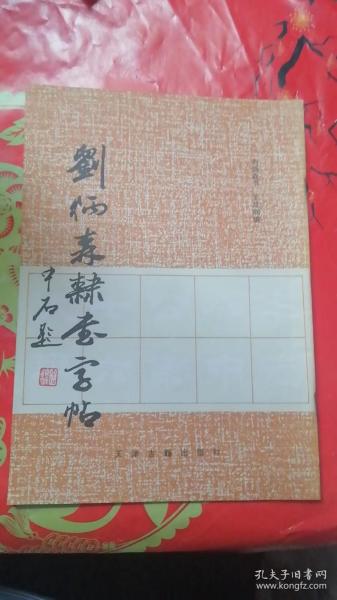 劉炳森隸書字帖
中石題
天津古籍出版社
孔夫子旧书网